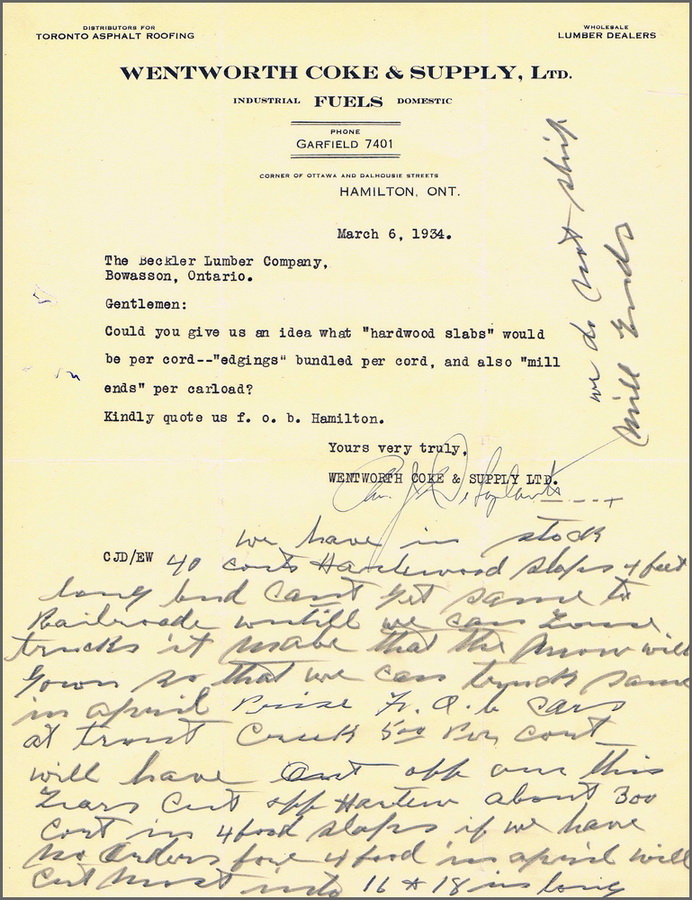 DISTRIBUTORS FOR
TORONTO ASPHALT ROOFING
WHOLESALE
LUMBER DEALERS
WENTWORTH COKE & SUPPLY, LTD.
INDUSTRIAL FUELS DOMESTIC
PHONE
GARFIELD 7401
CORNER OF OTTAWA AND DALHOUSIE STREETS
HAMILTON, ONT.
March 6, 1934.
The Beckler Lumber Company,
Bowasson, Ontario.
Gentlemen:
Could you give us an idea what "hardwood slabs" would
be per cord--"edgings" bundled per cord, and also "mill
ends" per carload?
Kindly quote us f. o. b. Hamilton.
Yours very truly,
WENTWORTH COKE & SUPPLY LTD.
CJD/EW
we do not ship
mill Ends
we have in stock
40 corts Hardwood slaps 4 feet
long and cant get same to
Railroade untill we can
trucks it that the snow will
so that we can truck same
in april F. O. b cars
at trout Creek 500 Per cort
will have cut off our this
years cut off about 300
cort in 4 food slaps if we have
no orders fore 4 food in april will
cut most into 16 & 18 ins long